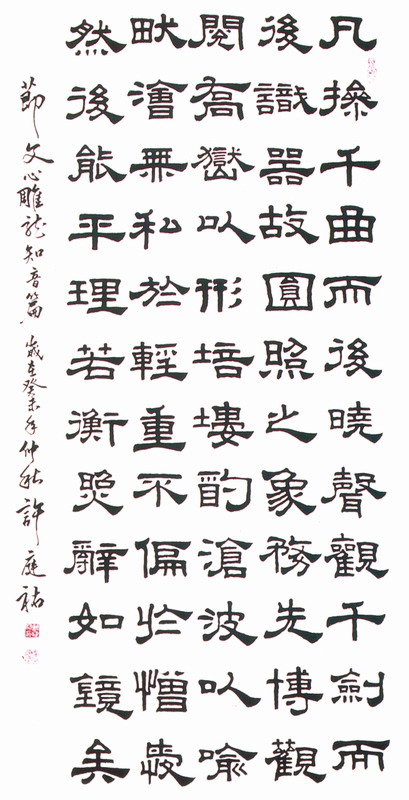 凡操千曲而後曉聲觀千劍而
後識器故圓照之象務先博觀
閱喬嶽以形培塿酌滄波以喻
畎澮無私於輕重不偏於憎愛
然後能平理若衡照辭如鏡矣
節文心雕龍知音篇 歲在癸未年仲秋 許庭祐